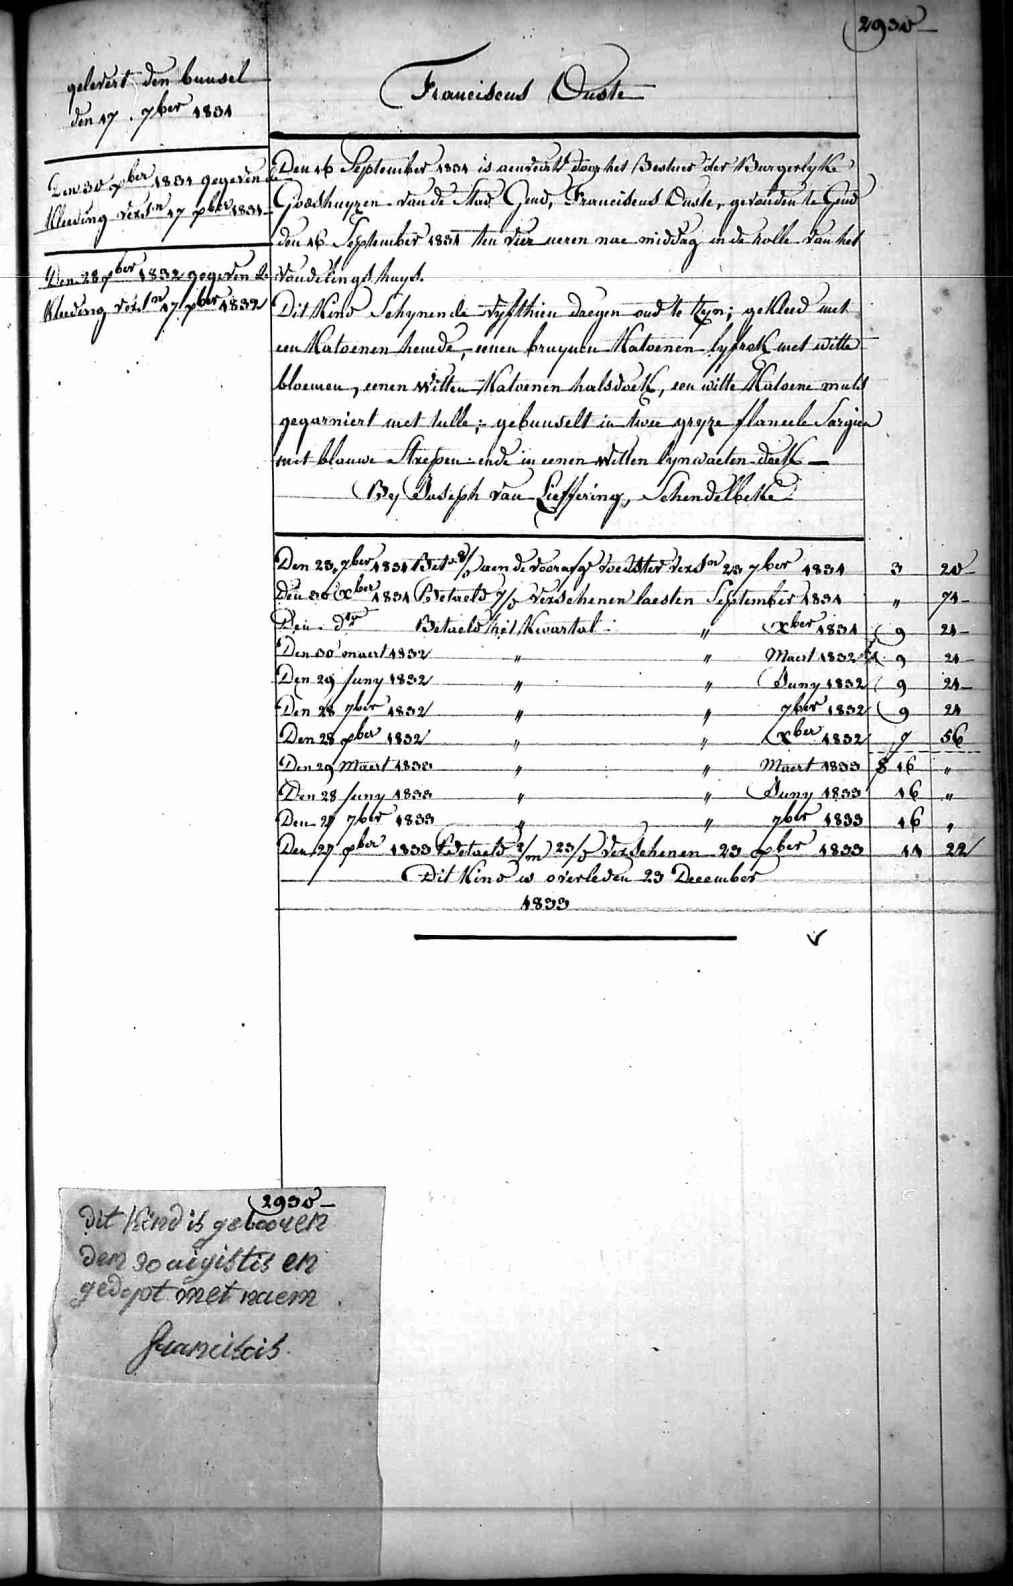 2930
gelevert den bunsel
den 17 . 7ber 1831
Den 30 xber 1831 gegeven de
Kleeding versn 17 xber 1831
Den 28 xber 1832 gegeven de
Kleeding versn 17 xber 1832
Franciscus Ouste
Den 16 September 1831 is aenveird door het Bestier der Burgerlyke
Godshuyzen van de Stad Gend, Franciscus Ouste, gevonden te Gend
den 16 September 1831 ten vier ueren nae middag in de rolle van het
vondelings huys.
Dit Kind Schynende vyfthien daegen oud te zyn; gekleed met
een Katoenen hemde, eenen bruynen Katoenen lyfrok met witte
bloemen, eenen witten Katoenen halsdoek, een witte Katoene muts
gegarniert met tulle; gebunselt in twee gryze flaneele Sargien
met blauwe Strepen ende in eenen witten lynwaeten doek
By Joseph van Lieffering, Schendelbeke
Den 23 7ber 1831 Bet 8/ aen de voorafg voedster versn 23 7ber 1831 3 20
Den 30 xber 1831 Betaeld 7/ verschenen laesten September 1831 " 71
Den dto Betaeld het Kwartal " xber 1831 9 21
Den 30 maert 1832 " " Maert 1832 9 21
Den 29 Juny 1832 " " Juny 1832 9 21
Den 28 7ber 1832 " " 7ber 1832 9 21
Den 28 xber 1832 " " xber 1832 7 56
Den 29 Maert 1833 " " Maert 1833 f 16 "
Den 28 Juny 1833 " " Juny 1833 16 "
Den 27 7ber 1833 " " 7ber 1833 16 "
Den 27 xber 1833 Betaeld 2/m 23/ verschenen 23 xber 1833 14 22
Dit Kind is overleden 23 December
1833
2930
dit kind is gebooren
den 30 aigistis en
gedopt met naem
franciscis